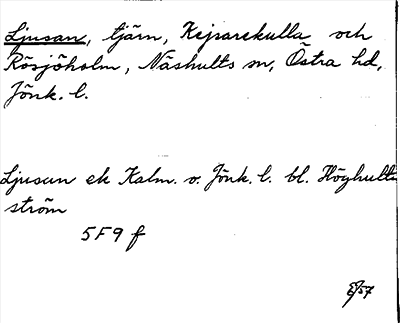 Ljusan, tjärn, Kejsarekulla och
Rösjöholm, Näshults sn, Östra hd,
Jönk. l.
Ljusan ek Kalm. o. Jönk. l. bl. Höghults
ström
5F9 f
E/57